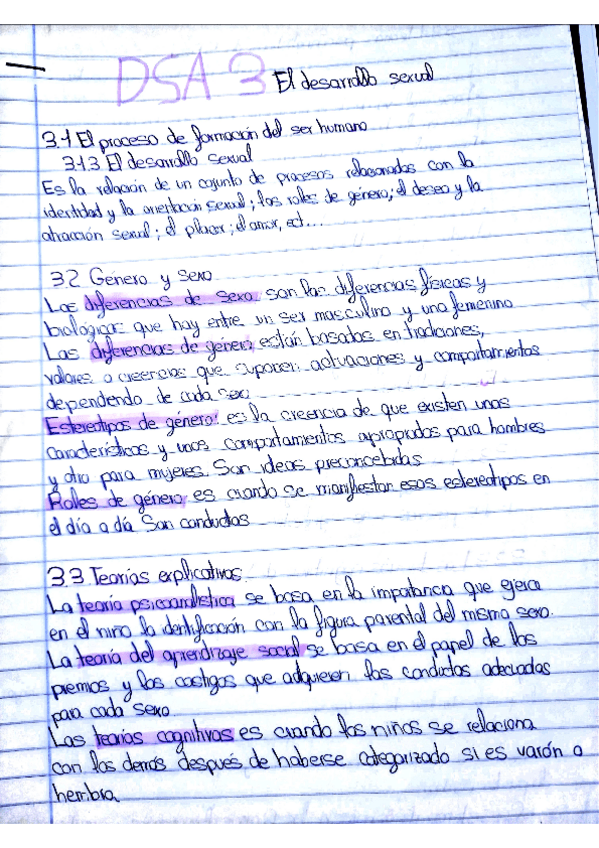 DSA 3 El desarrollo sexual
3.1 El proceso de formación del ser humano
3.1.3 El desarrollo sexual
Es la relación de un conjunto de procesos relacionados con la
identidad y la orientación sexual; los roles de género; el deseo y la
atracción sexual; el placer; el amor, ect...
3.2 Género y sexo
Las diferencias de sexo son las diferencias físicas y
biológicas que hay entre un ser masculino y uno femenino
Las diferencias de género están basadas en tradiciones,
valores o creencias que suponen actuaciones y comportamientos
dependiendo de cada sexo
Estereotipos de género: es la creencia de que existen unas
características y unos comportamientos apropiados para hombres
y otro para mujeres. Son ideas preconcebidas
Roles de género es cuando se manifiestan esos estereotipos en
el día a día Son conductas
3.3 Teorías explicativas
La teoría psicoanalística se basa en la importancia que ejerce
en el niño la identificación con la figura parental del mismo sexo.
La teoría del aprendizaje social se basa en el papel de los
premios y los castigos que adquieren las conductas adecuadas
para cada sexo
Las teorías cognitivas es cuando los niños se relaciona
con los demás después de haberse categorizado si es varón o
hembra